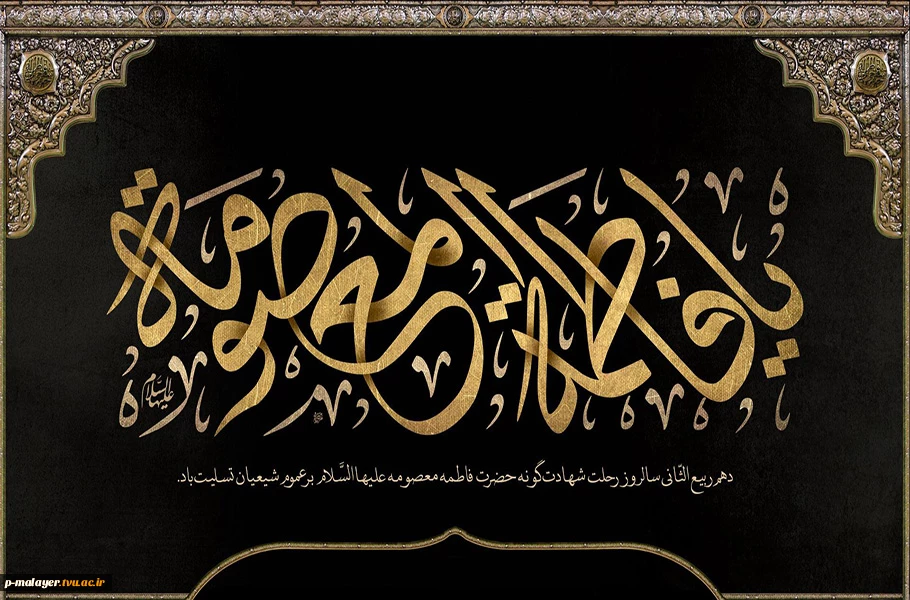 یا فاطمة المعصومة
علیها السلام
دهم ربیع الثّانی سالروز رحلت شهادت‌گونه حضرت فاطمه معصومه علیها السَّلام بر عموم شیعیان تسلیت باد.
p-malayer.tvu.ac.ir